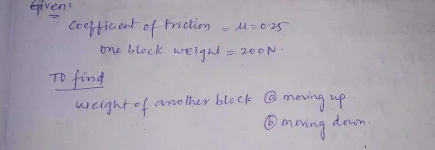 Given:
coefficient of friction = μ = 0.25
one block weight = 200N.
To find
weight of another block ⓐ moving up.
ⓑ moving down.